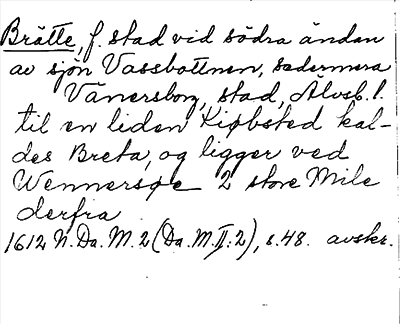 Brätte, f. stad vid södra ändan
av sjön Vassbottnen, sedermera
Vänersborg, stad, Älvsb. l.
til en liden Kiøbsted kal-
des Breta, og ligger ved
Wennersøe 2 store Mile
derfra
1612 N. Da. M. 2 (Da. M. II: 2), s. 48. avskr.